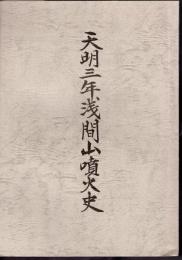 天明三年浅間山噴火史